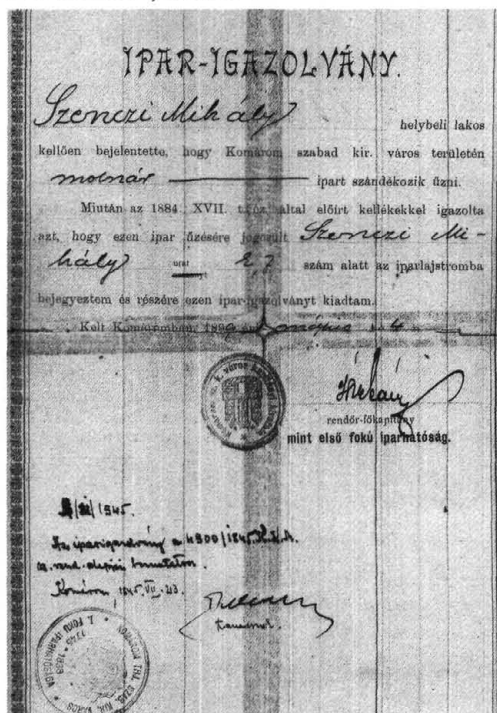 IPAR-IGAZOLVÁNY.
Szenczi Mihály helybeli lakos
kellően bejelentette, hogy Komárom szabad kir. város területén
molnár ipart szándékozik űzni.
Miután az 1884 XVII. t. cz. által előirt kellékekkel igazolta
azt, hogy ezen ipar űzésére jogosult Szenczi Mi-
hály urat 27 szám alatt az iparlajstromba
bejegyeztem és részére ezen ipar-igazolványt kiadtam.
Kelt Komáromban, 189
rendőr-főkapitány
mint első fokú iparhatóság.
1945.
Az iparigazolvány a 4900/1945.
Komárom, 1945. VII. 23.